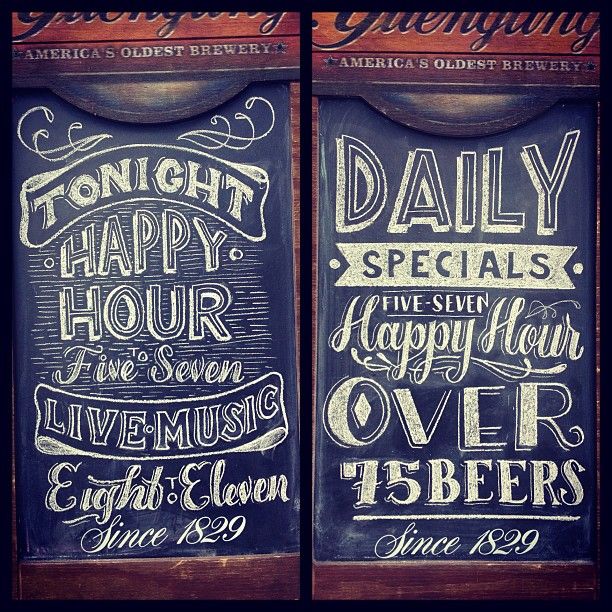 Yuengling
AMERICA'S OLDEST BREWERY
TONIGHT
HAPPY
HOUR
Five TO Seven
LIVE·MUSIC
Eight TO Eleven
Since 1829
Yuengling
AMERICA'S OLDEST BREWERY
DAILY
SPECIALS
FIVE-SEVEN
Happy Hour
OVER
75 BEERS
Since 1829